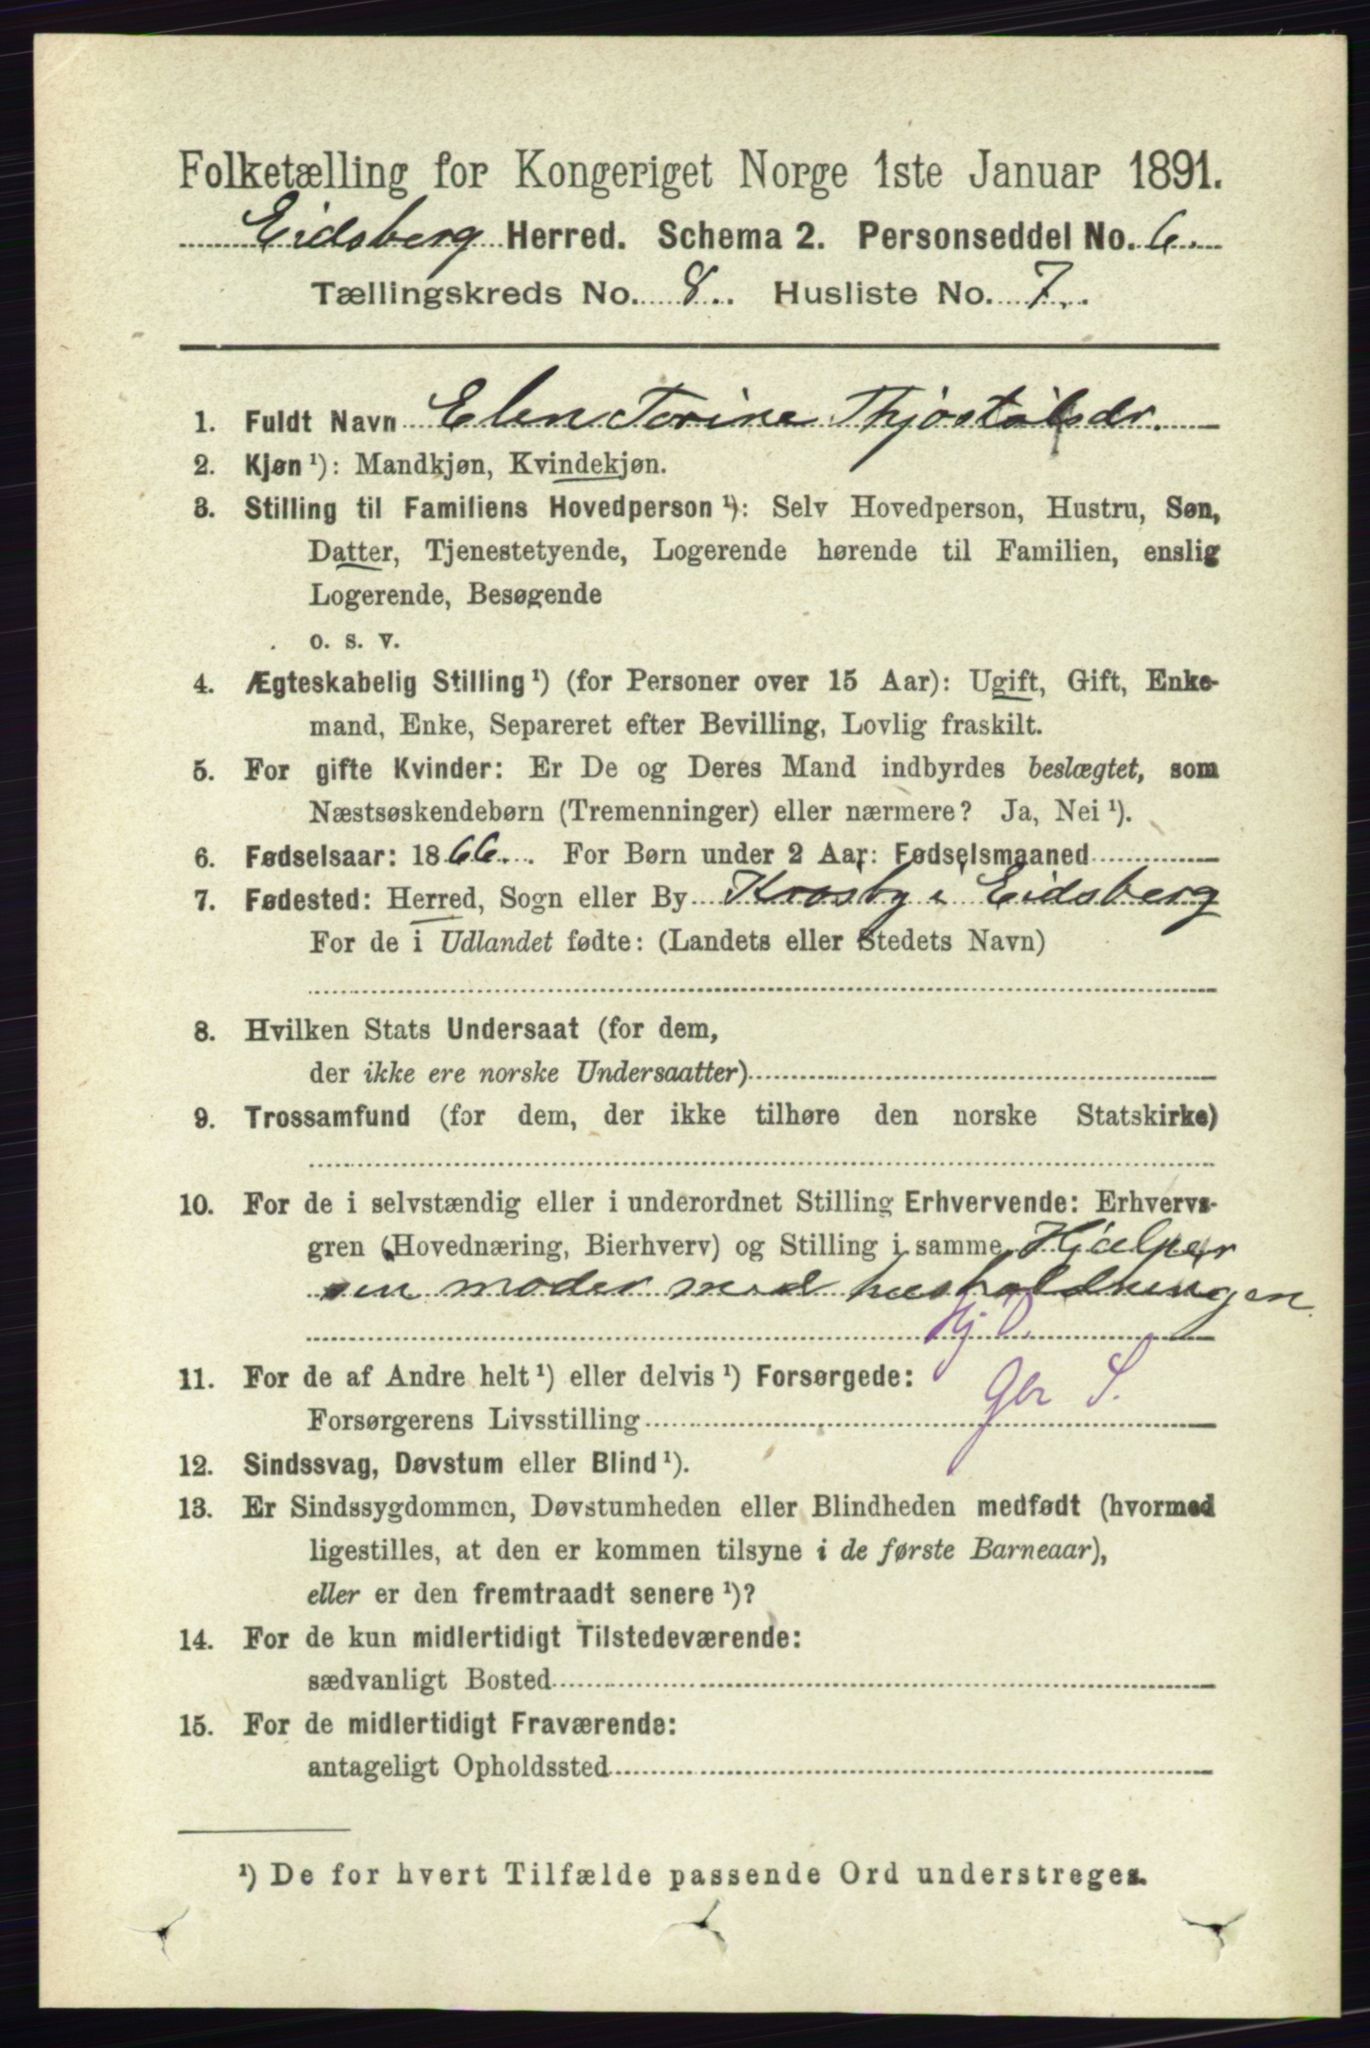 Folketælling for Kongeriget Norge 1ste Januar 1891.
Eidsberg Herred. Schema 2. Personseddel No. 6.
Tællingskreds No. 8. Husliste No. 7.
1. Fuldt Navn Elen Torine Thjostolsdr.
2. Kjøn ¹): Mandkjøn, Kvindekjøn.
3. Stilling til Familiens Hovedperson ¹): Selv Hovedperson, Hustru, Søn,
Datter, Tjenestetyende, Logerende hørende til Familien, enslig
Logerende, Besøgende
o. s. v.
4. Ægteskabelig Stilling ¹) (for Personer over 15 Aar): Ugift, Gift, Enke-
mand, Enke, Separeret efter Bevilling, Lovlig fraskilt.
5. For gifte Kvinder: Er De og Deres Mand indbyrdes beslægtet, som
Næstsøskendebørn (Tremenninger) eller nærmere? Ja, Nei ¹).
6. Fødselsaar: 1866. For Børn under 2 Aar: Fødselsmaaned
7. Fødested: Herred, Sogn eller By Krosby i Eidsberg
For de i Udlandet fødte: (Landets eller Stedets Navn)
8. Hvilken Stats Undersaat (for dem,
der ikke ere norske Undersaatter)
9. Trossamfund (for dem, der ikke tilhøre den norske Statskirke)
10. For de i selvstændig eller i underordnet Stilling Erhvervende: Erhvervs-
gren (Hovednæring, Bierhverv) og Stilling i samme Hjælper
sin moder med husholdningen
Hj D.
11. For de af Andre helt ¹) eller delvis ¹) Forsørgede:
Forsørgerens Livsstilling S.
12. Sindssvag, Døvstum eller Blind ¹).
13. Er Sindssygdommen, Døvstumheden eller Blindheden medfødt (hvormed
ligestilles, at den er kommen tilsyne i de første Barneaar),
eller er den fremtraadt senere ¹)?
14. For de kun midlertidigt Tilstedeværende:
sædvanligt Bosted
15. For de midlertidigt Fraværende:
antageligt Opholdssted
¹) De for hvert Tilfælde passende Ord understreges.